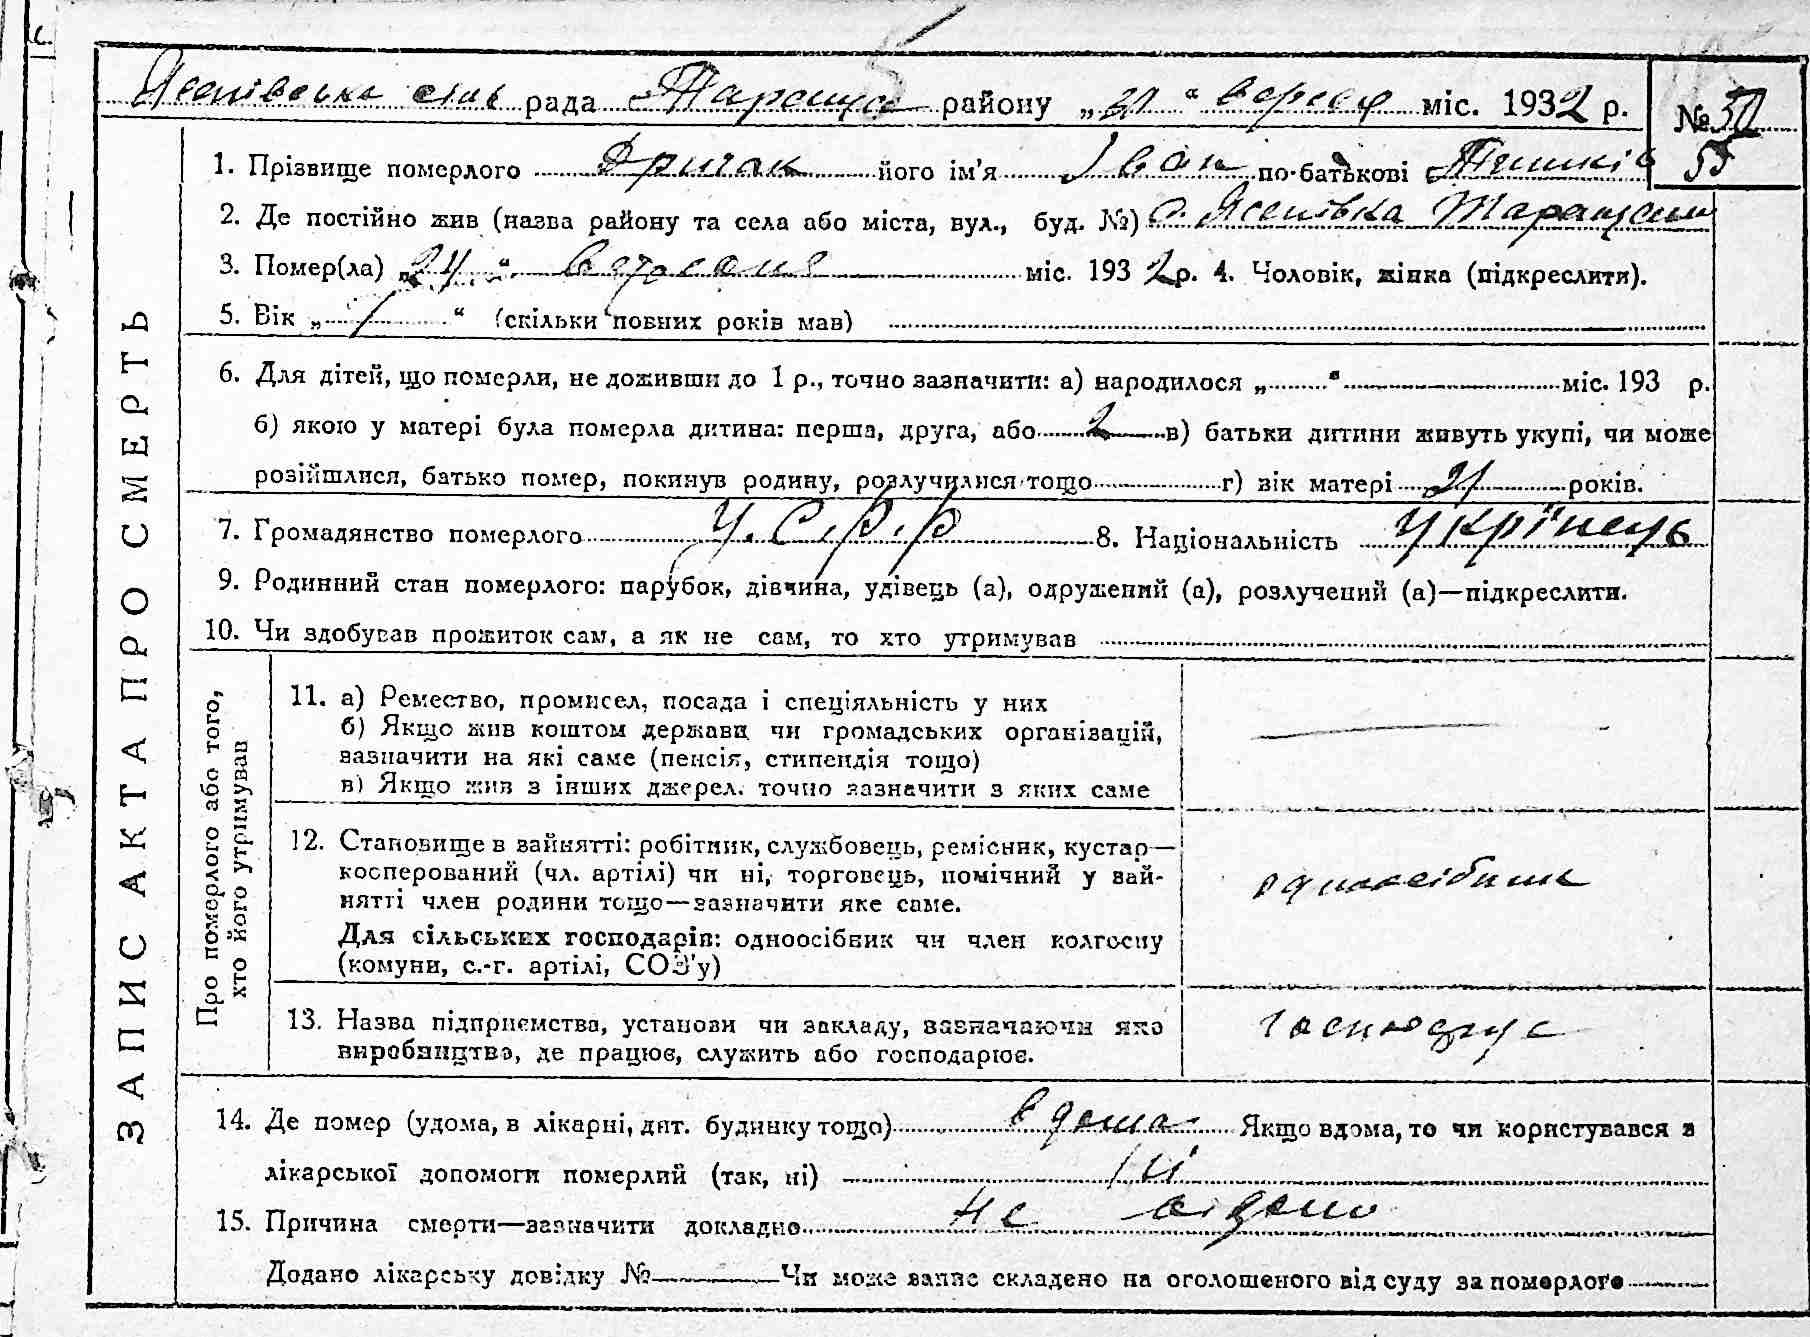 Ясенівська сіль рада Таращан району „21“ вересня міс. 1932 р. № 50
55
1. Прізвище померлого його ім'я Іван по-батькові
2. Де постійно жив (назва району та села або міста, вул., буд. №) с. Ясенівка Таращан
3. Помер(ла) „21“ вересня міс. 1932 р. 4. Чоловік, жінка (підкреслити).
5. Вік „ “ (скільки повних років мав)
6. Для дітей, що померли, не доживши до 1 р., точно зазначити: а) народилося „ “ міс. 193 р.
б) якою у матері була померла дитина: перша, друга, або 2 в) батьки дитини живуть укупі, чи може
розійшлися, батько помер, покинув родину, розлучилися тощо г) вік матері 21 років.
7. Громадянство померлого У.С.Р.Р 8. Національність Украінець
9. Родинний стан померлого: парубок, дівчина, удівець (а), одружений (а), розлучений (а)—підкреслити.
10. Чи здобував прожиток сам, а як не сам, то хто утримував
ЗАПИС АКТА ПРО СМЕРТЬ
Про померлого або того,
хто його утримував
11. а) Ремество, промисел, посада і спеціяльність у них
б) Якщо жив коштом держави чи громадських організацій,
зазначити на які саме (пенсія, стипендія тощо)
в) Якщо жив з інших джерел, точно зазначити з яких саме
12. Становище в занятті: робітник, службовець, ремісник, кустар—
кооперований (чл. артілі) чи ні, торговець, помічний у зай-
нятті член родини тощо—зазначити яке саме.
Для сільських господарів: одноосібник чи член колгоспу
(комуни, с.-г. артілі, СОЗ'у)
одноосібник
13. Назва підприємства, установи чи закладу, зазначаючи яке
виробництво, де працює, служить або господарює.
господарює
14. Де помер (удома, в лікарні, дит. будинку тощо) вдома Якщо вдома, то чи користувався з
лікарської допомоги померлий (так, ні) ні
15. Причина смерти—зазначити докладно не відомо
Додано лікарську довідку № Чи може запис складено на оголошеного від суду за померлого